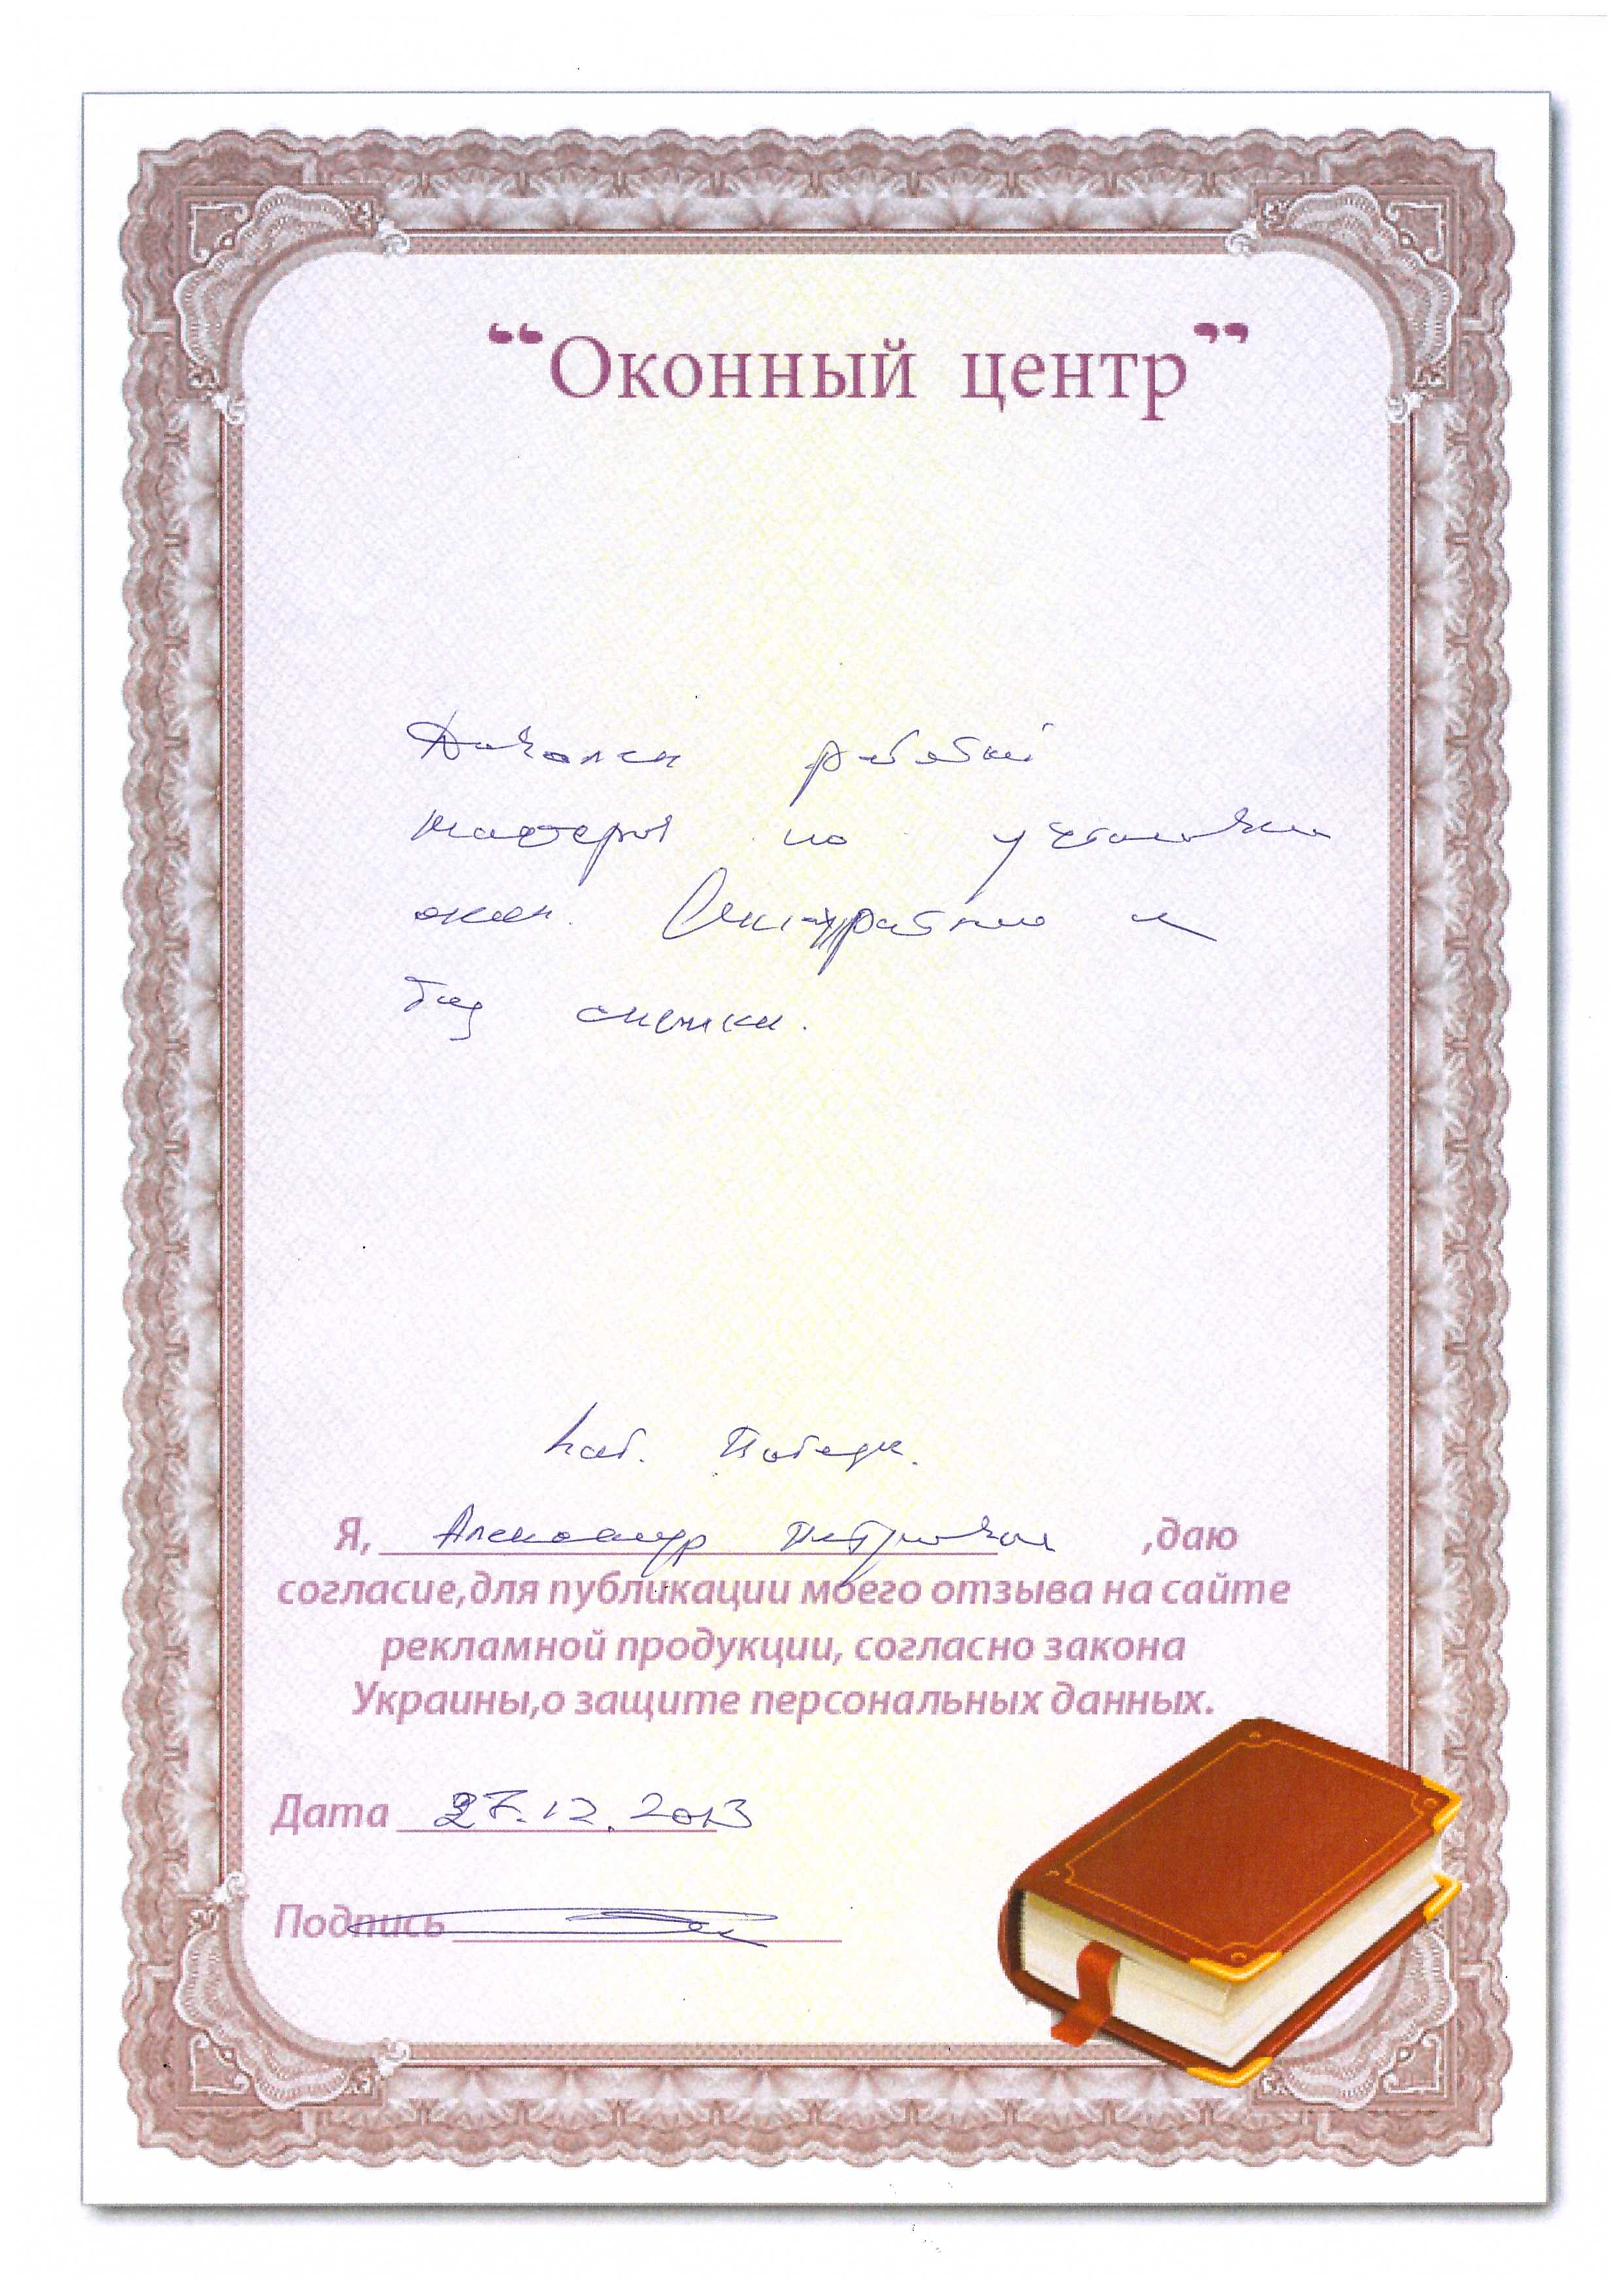 “Оконный центр”
Доволен работой
мастеров по установки
окон. Аккуратно и
без спешки.
наб. Победы.
Я, Александр Петрович ,даю
согласие,для публикации моего отзыва на сайте
рекламной продукции, согласно закона
Украины,о защите персональных данных.
Дата 27.12.2013
Подпись